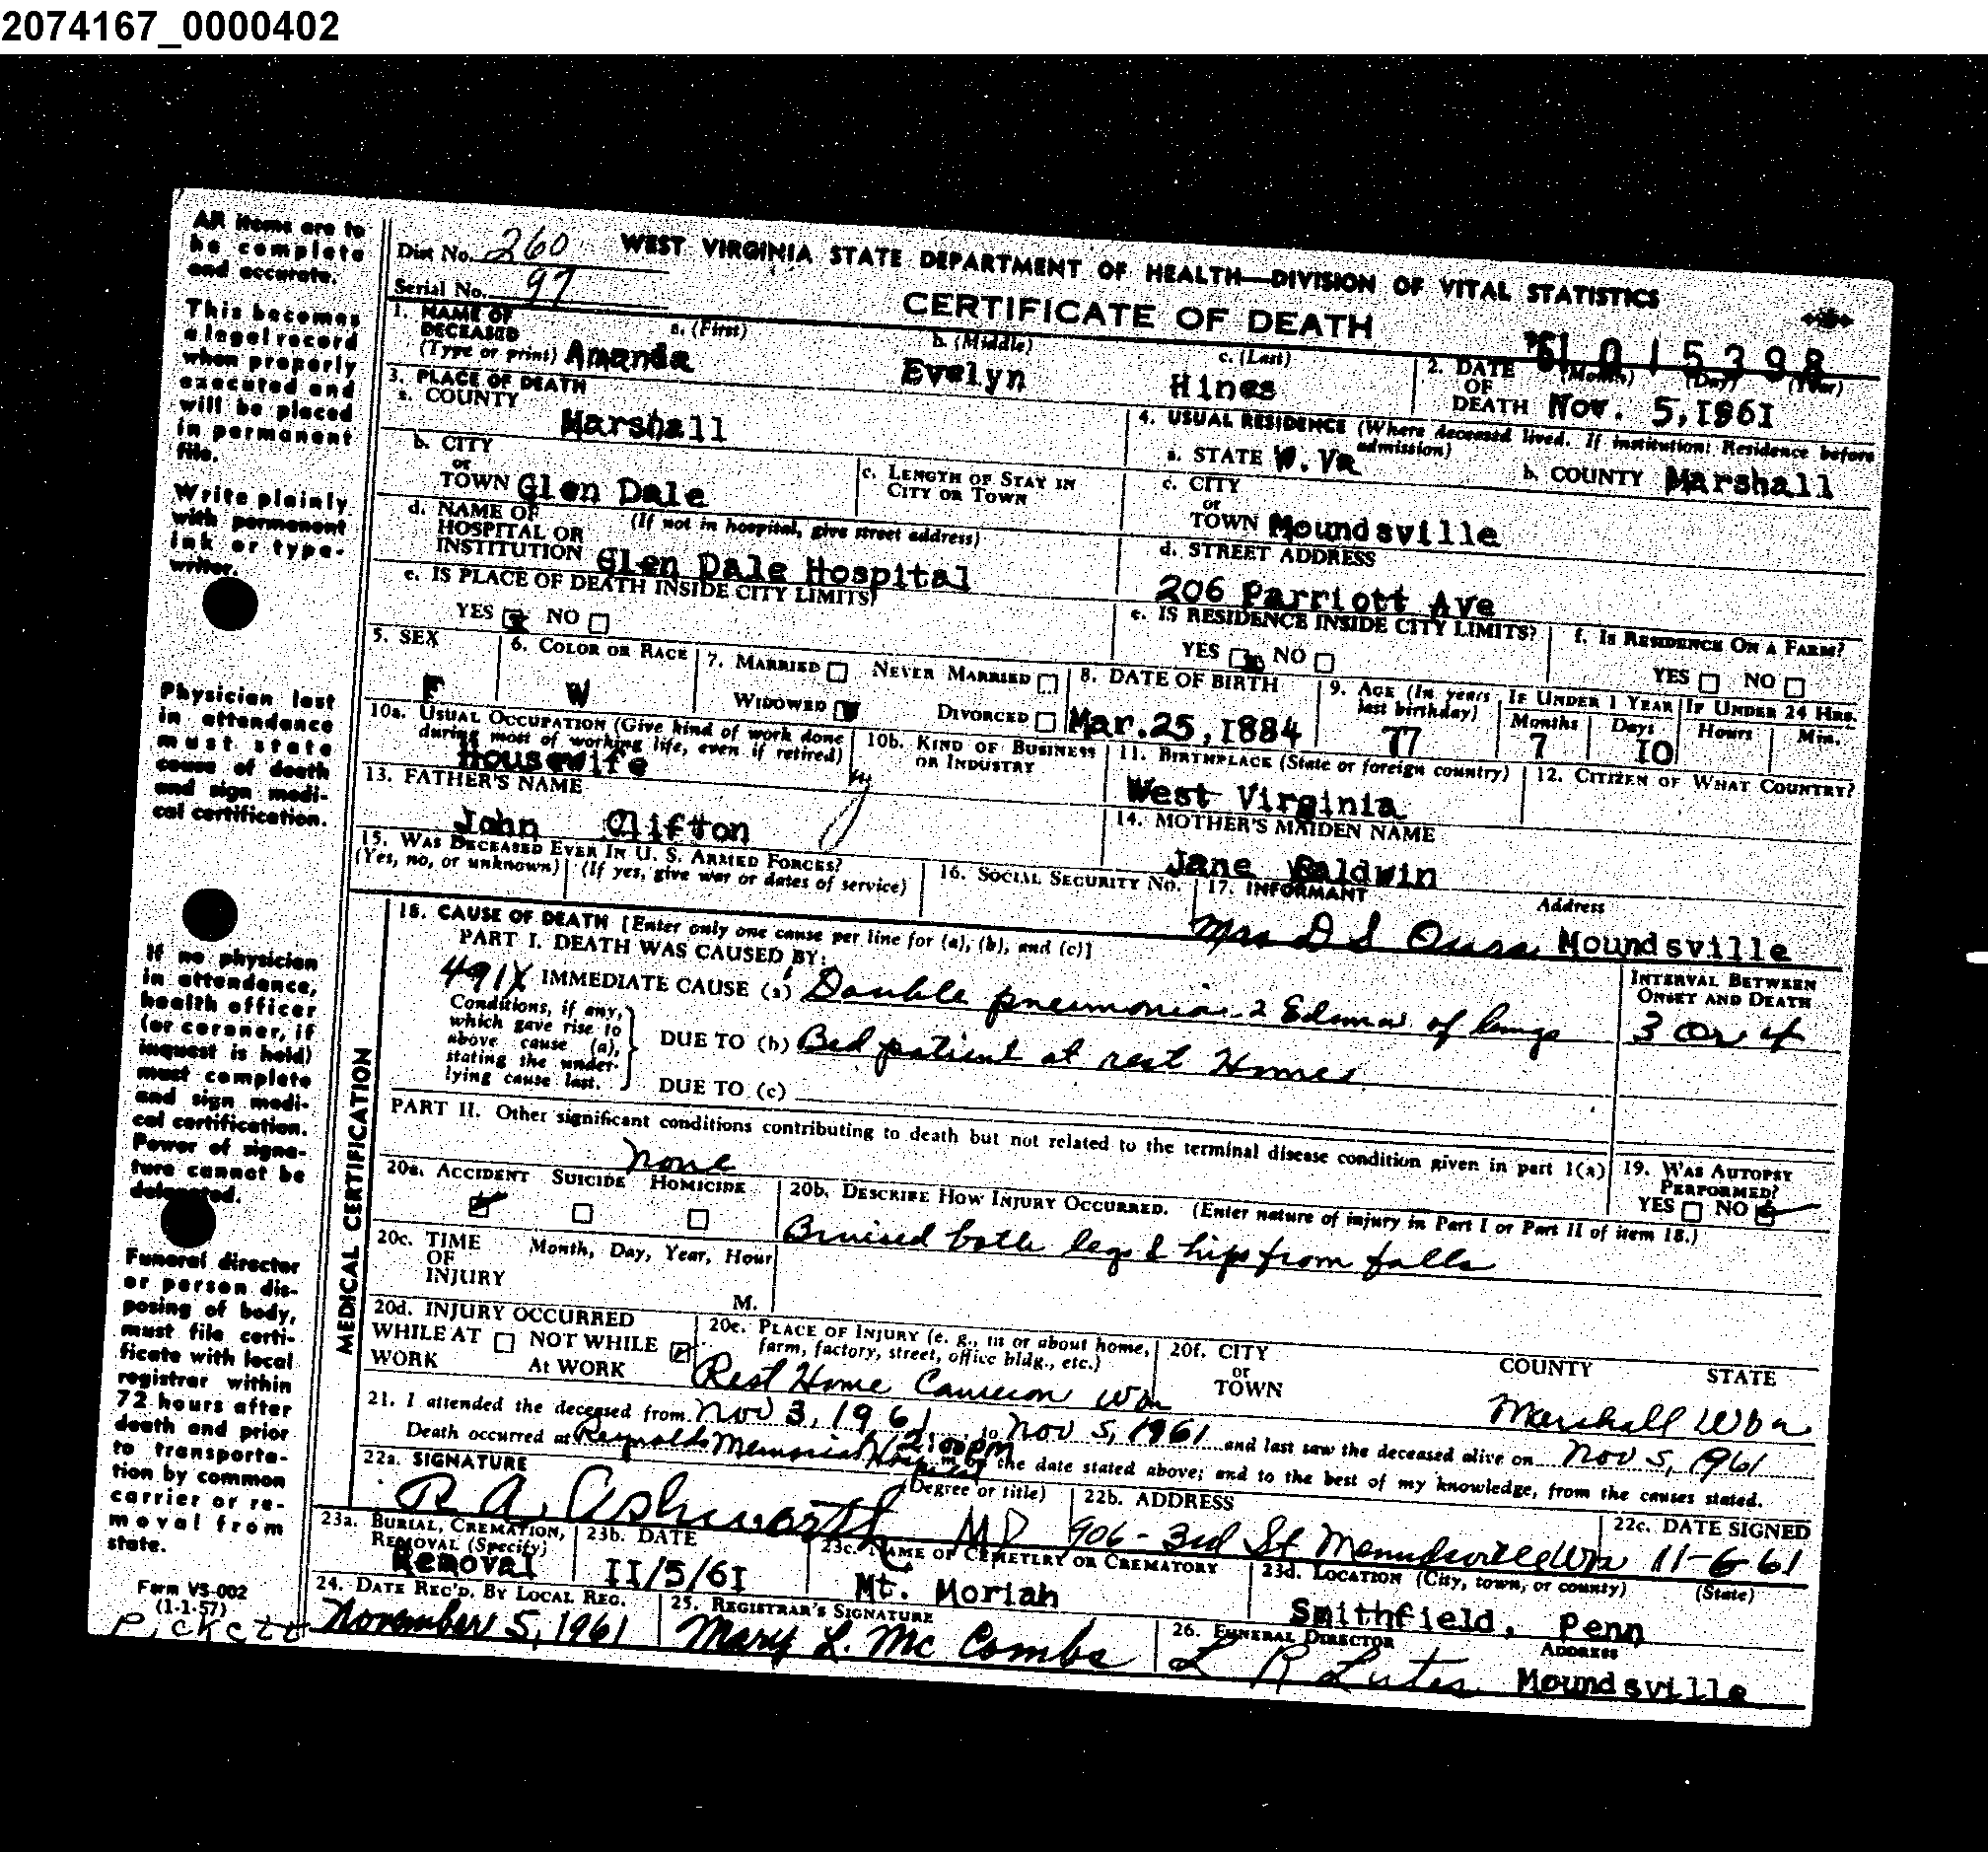 2074167_0000402
All items are to
be complete
and accurate.
This becomes
a legal record
when properly
executed and
will be placed
in permanent
file.
Write plainly
with permanent
ink or type-
writer.
Physician last
in attendance
must state
cause of death
and sign medi-
cal certification.
If no physician
in attendance,
health officer
(or coroner, if
inquest is held)
must complete
and sign medi-
cal certification.
Power of signa-
ture cannot be
delegated.
Funeral director
or person dis-
posing of body,
must file certi-
ficate with local
registrar within
72 hours after
death and prior
to transporta-
tion by common
carrier or re-
moval from
state.
Form VS-002
(1-1-57)
Pickett
Dist No. 260 WEST VIRGINIA STATE DEPARTMENT OF HEALTH—DIVISION OF VITAL STATISTICS
Serial No. 97
CERTIFICATE OF DEATH
61 015398
1. NAME OF DECEASED (Type or print) a. (First) Amanda b. (Middle) Evelyn c. (Last) Hines
2. DATE OF DEATH (Month) (Day) (Year) Nov. 5, 1861
3. PLACE OF DEATH
a. COUNTY Marshall
4. USUAL RESIDENCE (Where deceased lived. If institution: Residence before admission)
a. STATE W. Va b. COUNTY Marshall
b. CITY or TOWN Glen Dale
c. LENGTH OF STAY IN CITY OR TOWN
c. CITY or TOWN Moundsville
d. NAME OF HOSPITAL OR INSTITUTION (If not in hospital, give street address) Glen Dale Hospital
d. STREET ADDRESS 206 Parriott Ave
e. IS PLACE OF DEATH INSIDE CITY LIMITS? YES NO
e. IS RESIDENCE INSIDE CITY LIMITS? YES NO
f. IS RESIDENCE ON A FARM? YES NO
5. SEX F
6. COLOR OR RACE W
7. MARRIED NEVER MARRIED WIDOWED DIVORCED
8. DATE OF BIRTH Mar. 25, 1884
9. AGE (In years last birthday) 77
IF UNDER 1 YEAR Months 7 Days 10
IF UNDER 24 HRS. Hours Min.
10a. USUAL OCCUPATION (Give kind of work done during most of working life, even if retired) Housewife
10b. KIND OF BUSINESS OR INDUSTRY
11. BIRTHPLACE (State or foreign country) West Virginia
12. CITIZEN OF WHAT COUNTRY?
13. FATHER'S NAME John Clifton
14. MOTHER'S MAIDEN NAME Jane Baldwin
15. WAS DECEASED EVER IN U. S. ARMED FORCES? (Yes, no, or unknown) (If yes, give war or dates of service)
16. SOCIAL SECURITY NO.
17. INFORMANT Mrs D S Address Moundsville
MEDICAL CERTIFICATION
18. CAUSE OF DEATH [Enter only one cause per line for (a), (b), and (c)]
PART I. DEATH WAS CAUSED BY:
INTERVAL BETWEEN ONSET AND DEATH
491X IMMEDIATE CAUSE (a) Double pneumonia & Edema of lungs 3 or 4
Conditions, if any, which gave rise to above cause (a), stating the under-lying cause last.
DUE TO (b) Bed patient at rest Homes
DUE TO (c)
PART II. Other significant conditions contributing to death but not related to the terminal disease condition given in part 1(a)
none
19. WAS AUTOPSY PERFORMED? YES NO
20a. ACCIDENT SUICIDE HOMICIDE
20b. DESCRIBE HOW INJURY OCCURRED. (Enter nature of injury in Part I or Part II of item 18.)
Bruised both legs & hips from falls
20c. TIME OF INJURY Month, Day, Year, Hour M.
20d. INJURY OCCURRED WHILE AT WORK NOT WHILE At WORK
20e. PLACE OF INJURY (e. g., in or about home, farm, factory, street, office bldg., etc.) Rest Home Cameron Wva
20f. CITY or TOWN COUNTY STATE Marshall Wva
21. I attended the deceased from Nov 3, 1961 to Nov 5, 1961 and last saw the deceased alive on Nov 5, 1961
Death occurred at Reynolds Memorial Hospital 2:00PM m on the date stated above; and to the best of my knowledge, from the causes stated.
22a. SIGNATURE R A. Ashworth MD (Degree or title)
22b. ADDRESS 906 - 3rd St Moundsville Wva
22c. DATE SIGNED 11-6-61
23a. BURIAL, CREMATION, REMOVAL (Specify) Removal
23b. DATE 11/5/61
23c. NAME OF CEMETERY OR CREMATORY Mt. Moriah
23d. LOCATION (City, town, or county) (State) Smithfield, Penn
24. DATE REC'D. BY LOCAL REG. November 5, 1961
25. REGISTRAR'S SIGNATURE Mary L. McCombs
26. FUNERAL DIRECTOR L R Lutes ADDRESS Moundsville